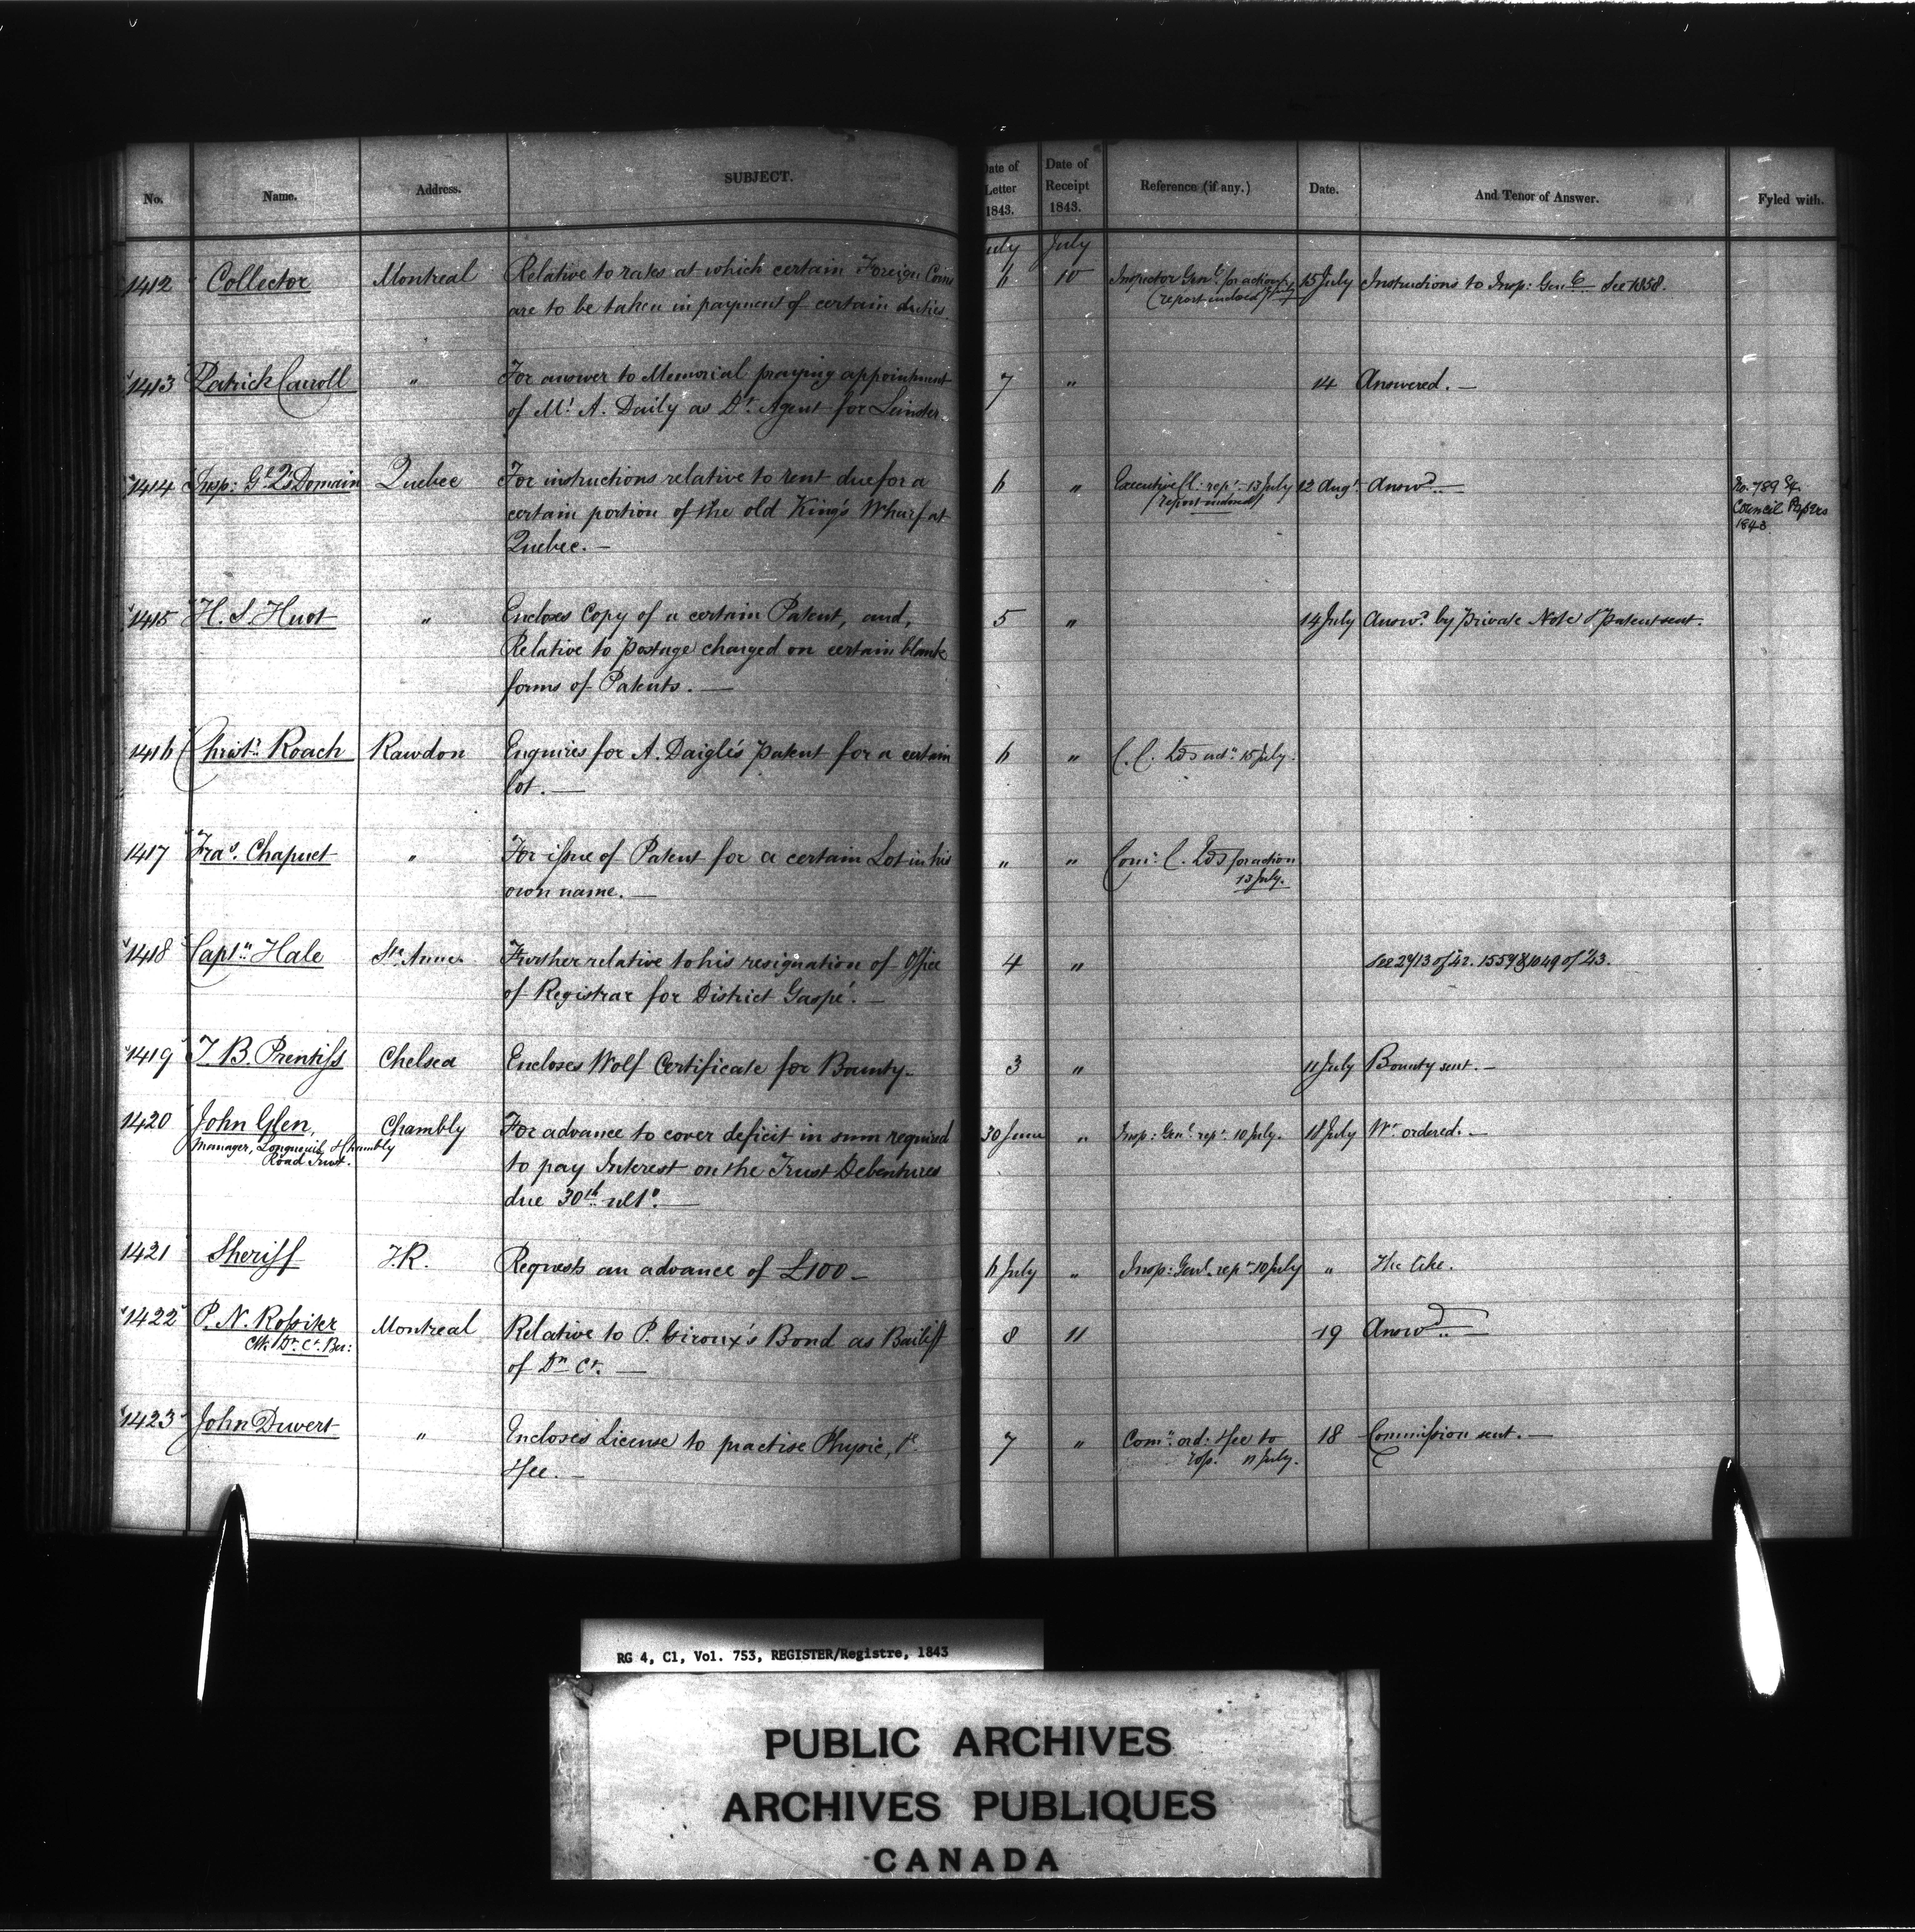 No. Name. Address. SUBJECT. Date of Letter 1843. Date of Receipt 1843. Reference (if any.) Date. And Tenor of Answer. Fyled with.
July July
1412 Collector Montreal Relative to rates at which certain Foreign Coins 6 10 Inspector Genl. for action 15 July Instructions to Insp: Genl. See 1358.
are to be taken in payment of certain duties. (report inclosed
1413 Patrick Carroll " For answer to Memorial praying appointment 7 " 14 Answered. —
of Mr. A. Daily as Dt. Agent for Leinster
1414 Insp: Gl. Q's Domain Quebec For instructions relative to rent due for a 6 " Executive Cl. rept. 13 July 12 Augt. Answd. — No. 789 Council Papers 1843
certain portion of the old King's Wharf at (report inclosed)
Quebec. —
1415 H. S. Huot " Encloses Copy of a certain Patent, and, 5 " 14 July Answd. by private Note & Patent sent.
Relative to postage charged on certain blank
forms of Patents. —
1416 Christr. Roach Rawdon Enquires for A. Daigle's Patent for a certain 6 " C. C. Lds actn. 15 July.
lot. —
1417 Fras. Chaput " For issue of Patent for a certain Lot in his " " Comr. C. Lds for action
own name. — 13 July.
1418 Captn. Hale Ste. Anne Further relative to his resignation of Office 4 " See 2913 of 42. 1559 & 1049 of 43.
of Registrar for District Gaspé. —
1419 T. B. Prentiss Chelsea Encloses Wolf Certificate for Bounty. 3 " 11 July Bounty sent. —
1420 John Glen, Chambly For advance to cover deficit in sum required 30 June " Insp: Genl. rept. 10 July. 18 July Wt. ordered. —
Manager, Longueuil & Chambly to pay Interest on the Trust Debentures
Road Trust. due 30th ulto. —
1421 Sheriff T.R. Requests an advance of £100 — 6 July " Insp: Genl. rept. 10 July " The like.
1422 P. N. Rossiter Montreal Relative to P. Giroux's Bond as Bailiff 8 11 19 Answd. —
Clk. Dt. Ct. Ber: of Dn Ct. —
1423 John Duvert " Encloses License to practise Physic, & 7 " Comn. ord: & fee to 18 Commission sent. —
fee. — 11 July.
RG 4, C1, Vol. 753, REGISTER/Registre, 1843
PUBLIC ARCHIVES
ARCHIVES PUBLIQUES
CANADA